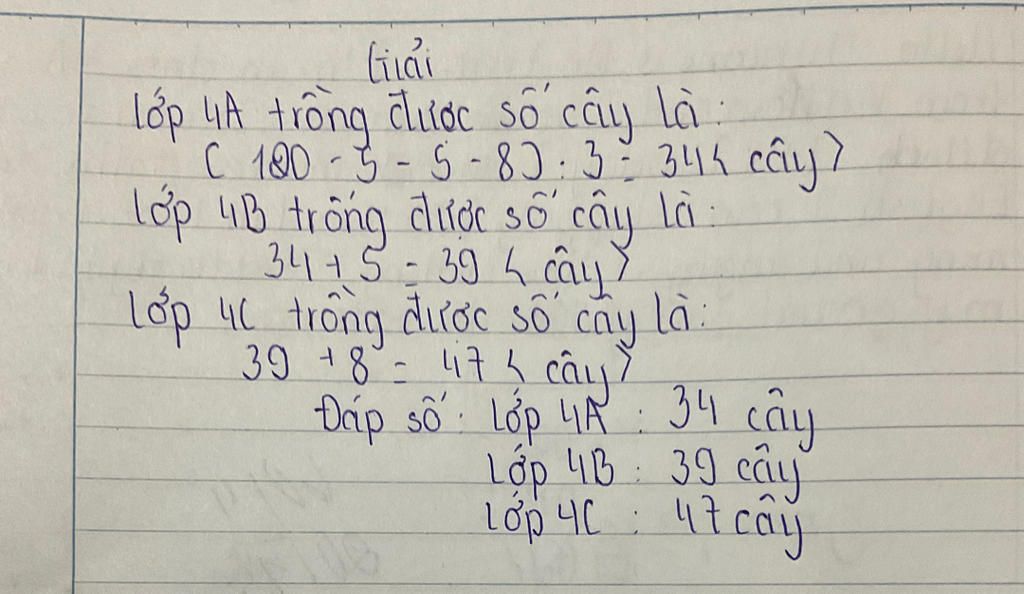 Giải
Lớp 4A trồng được số cây là:
( 120 - 5 - 5 - 8) : 3 = 34 ( cây)
Lớp 4B trống được số cây là:
34 + 5 = 39 ( cây)
Lớp 4C trồng được số cây là:
39 + 8 = 47 ( cây)
Đáp số: Lớp 4A : 34 cây
Lớp 4B : 39 cây
Lớp 4C : 47 cây